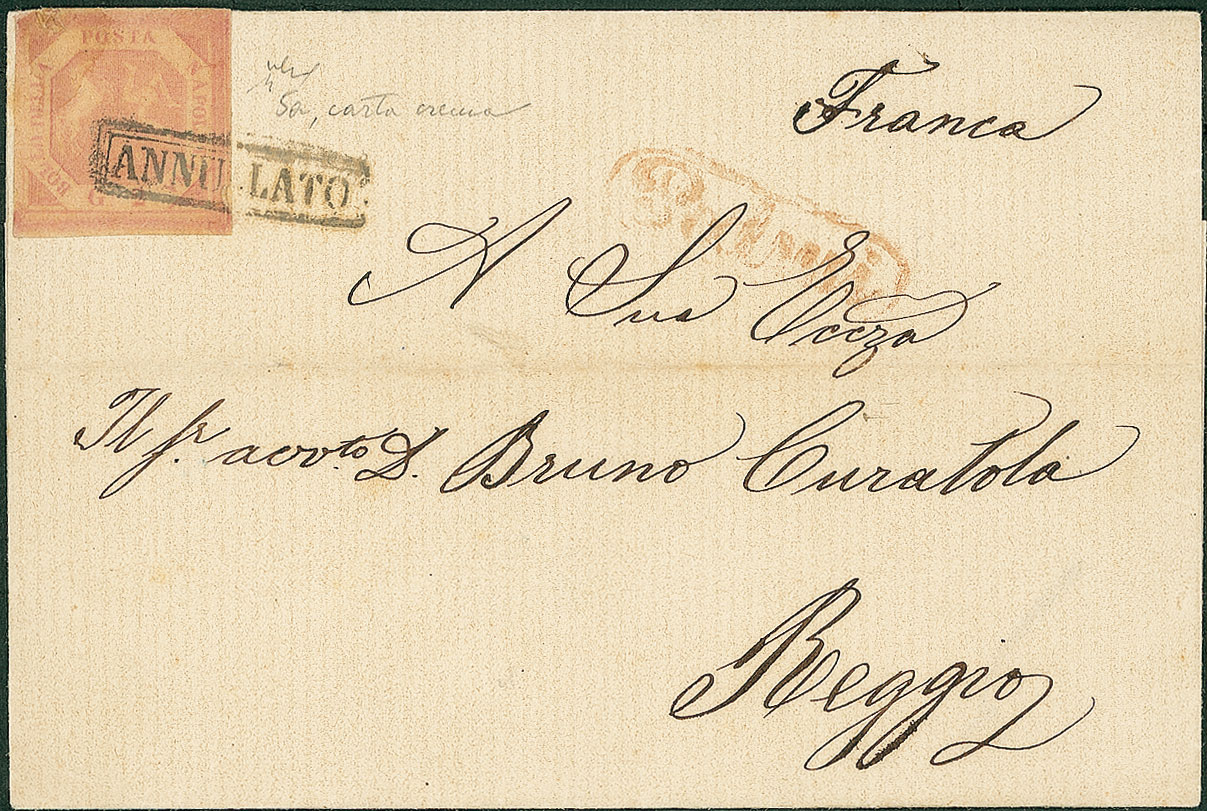 POSTA
NAPOL
BOLLO DELLA
G
ANNULLATO
5a, carta crema
Franca
A Sua Eccza
Il Sr. avvto D. Bruno Curatola
Reggio